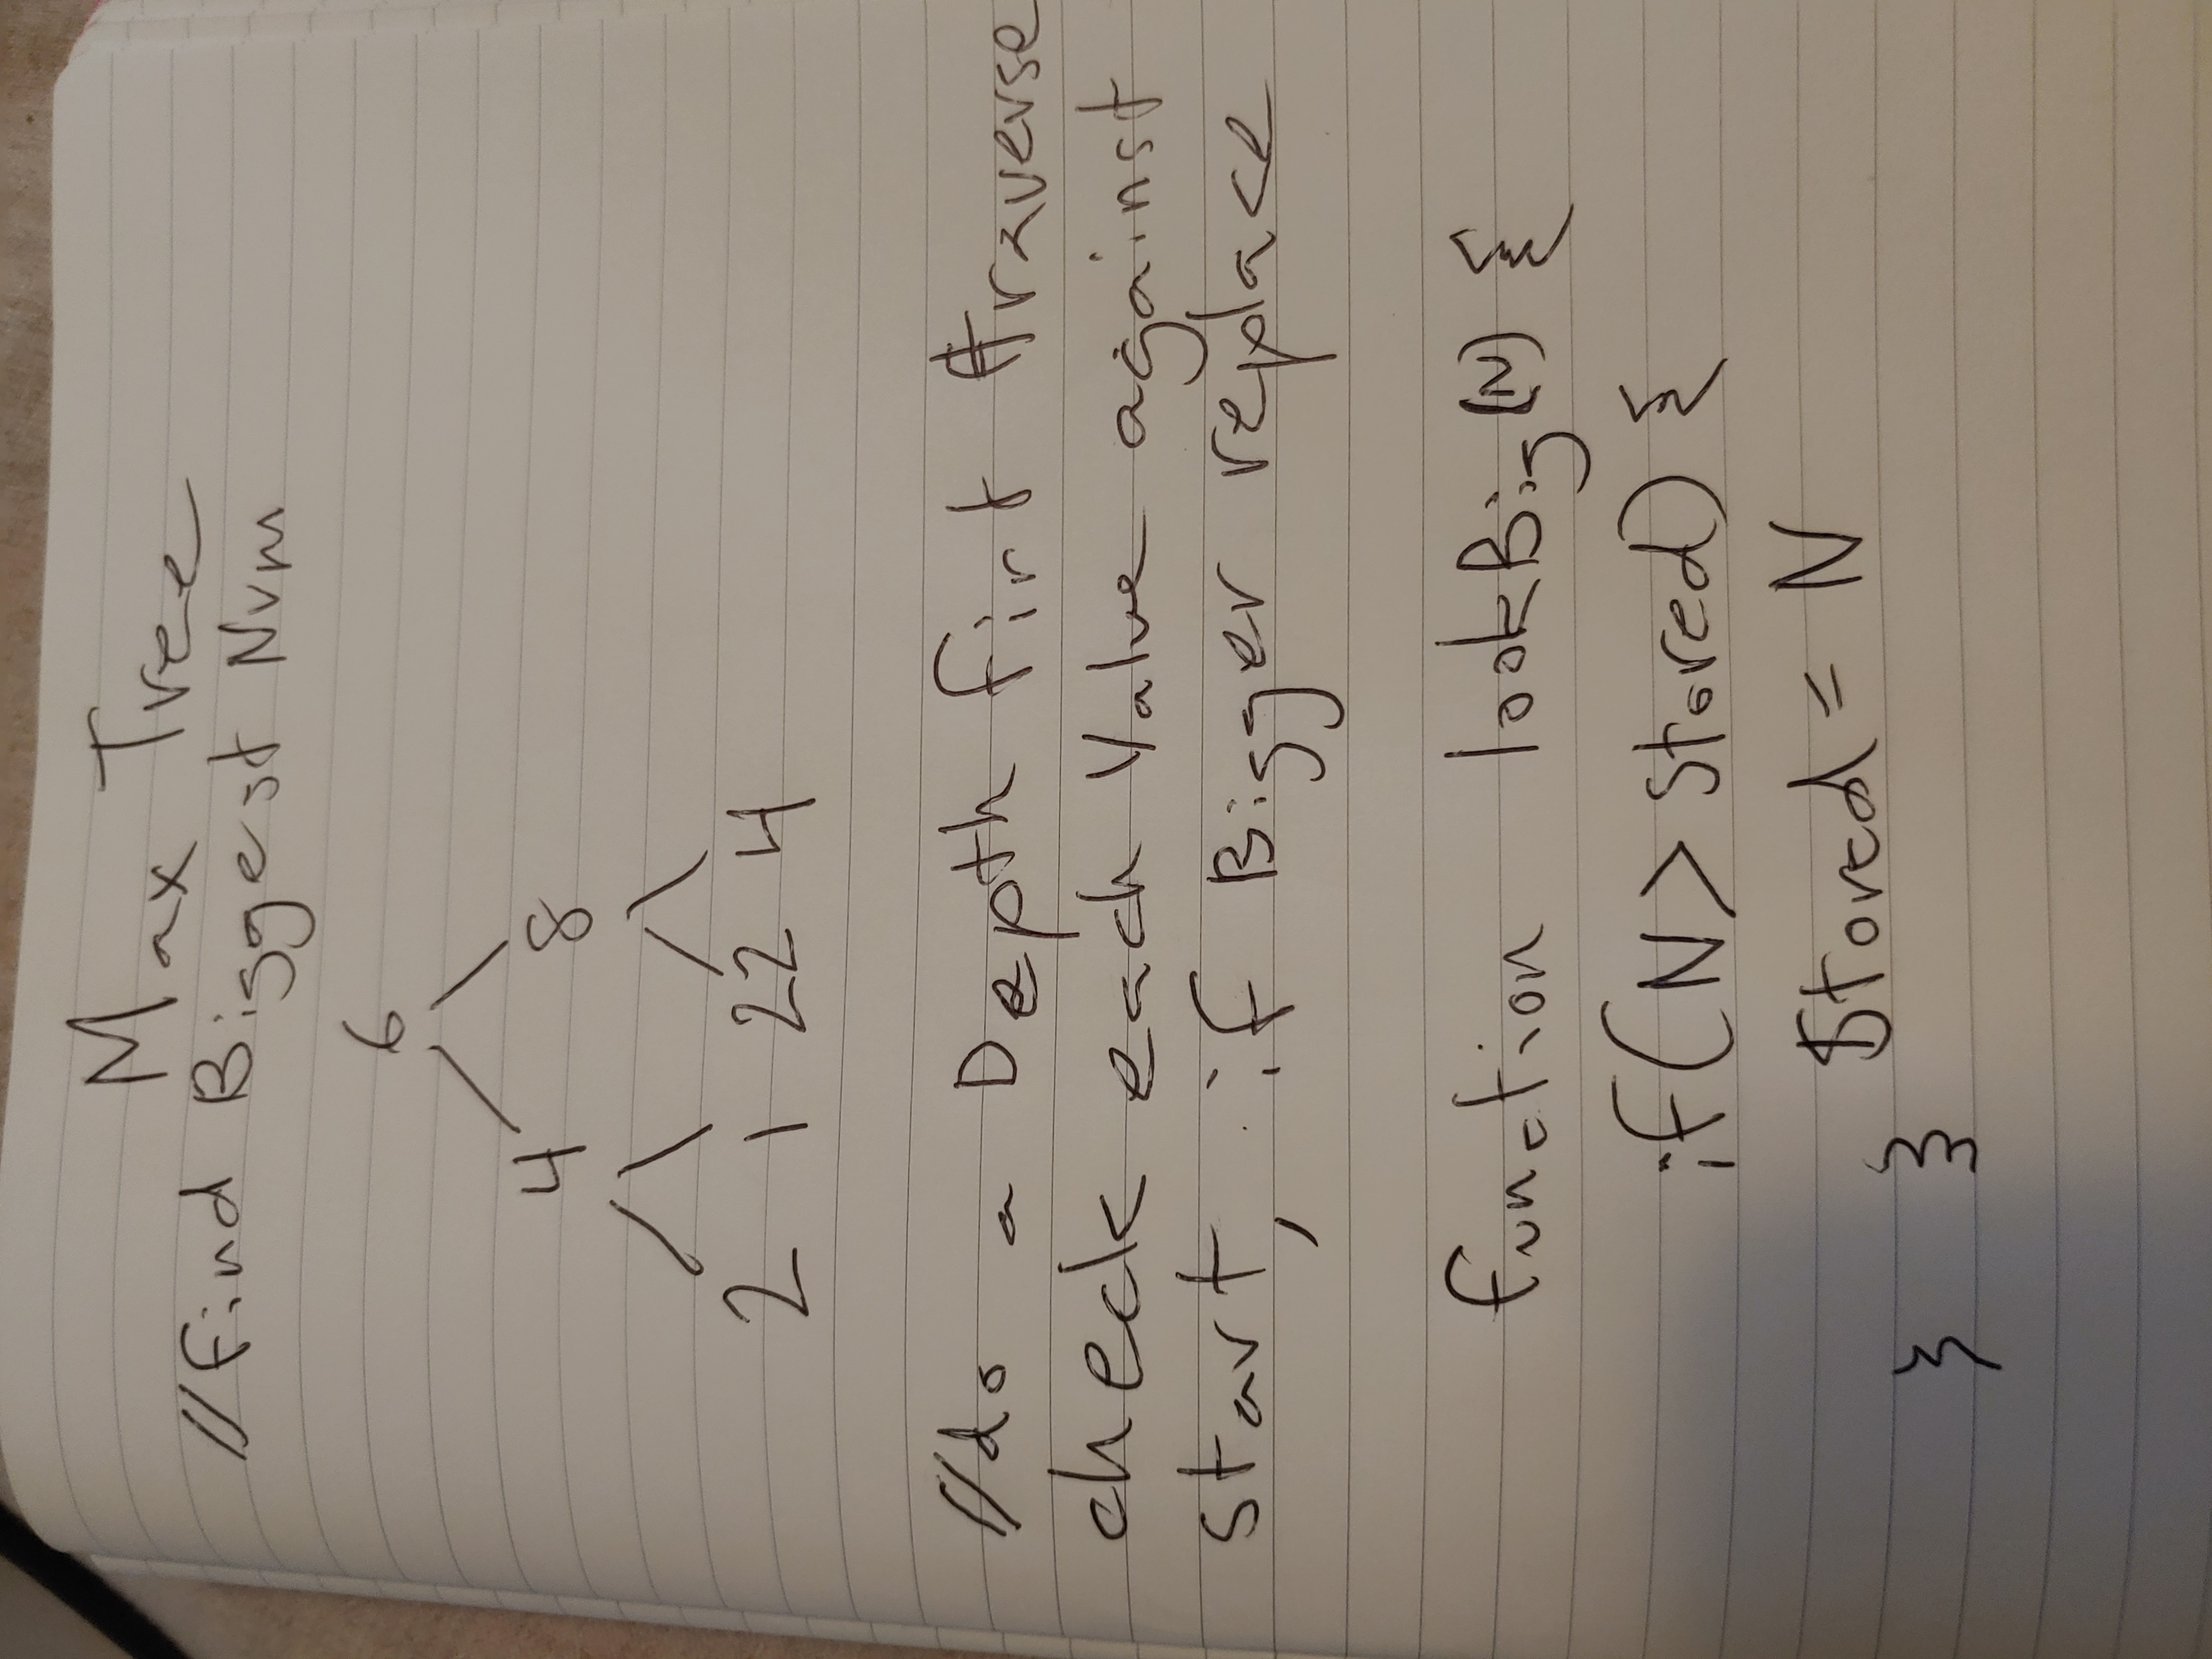 Max Tree
//Find Biggest Num
6
4 8
2 1 22 4
//do a Depth first traverse
check each Value against
start, if Bigger replace
function lookBig(N) {
if(N > Stored) {
Stored = N
} }